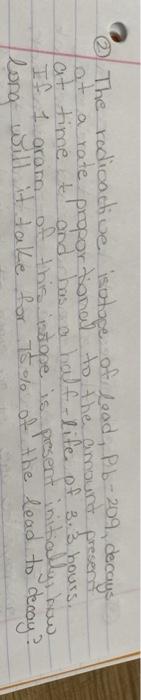 ② The radioactive isotope of lead, Pb-209, decays
at a rate proportional to the amount present
at time t and has a half-life of 3.3 hours.
If 1 gram of this isotope is present initially, how
long will it take for 75% of the lead to decay?